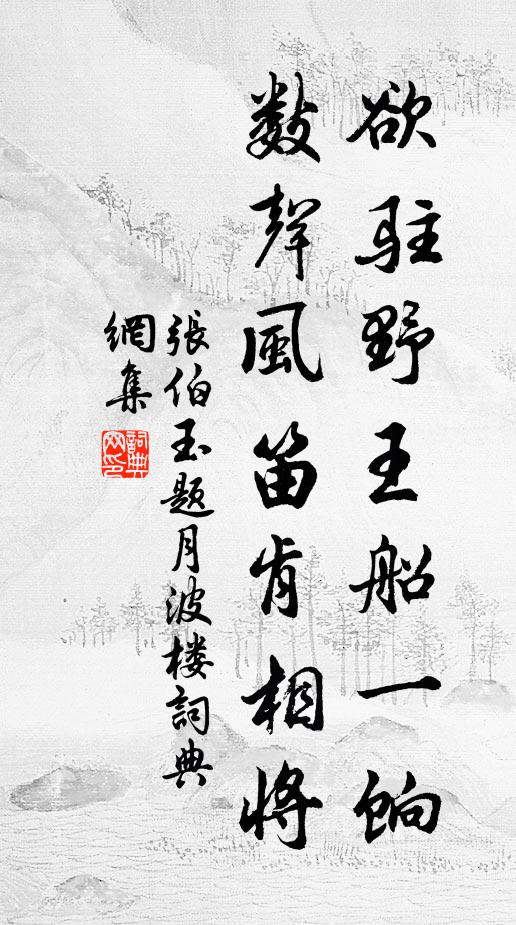 欲駐野王船一餉
數聲風笛肯相將
張伯玉题月波楼詞典
網集
詞典
网印